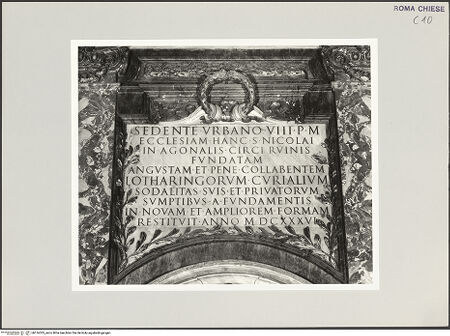 ROMA CHIESE
C 10
SEDENTE VRBANO VIII·P·M
ECCLESIAM·HANC·S·NICOLAI
IN·AGONALIS·CIRCI·RVINIS
FVNDATAM
ANGVSTAM·ET·PENE·COLLABENTEM
LOTHARINGORVM·CVRIALIVM
SODALITAS·SVIS·ET·PRIVATORVM
SVMPTIBVS·A·FVNDAMENTIS
IN·NOVAM·ET·AMPLIOREM·FORMAM
RESTITVIT·ANNO M DC